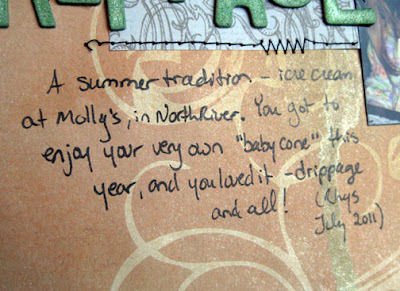 PPAGE
A summer tradition - ice cream
at Molly's, in North River. You got to
enjoy your very own "baby cone" this
year, and you loved it - drippage
and all! (Rhys
July 2011)